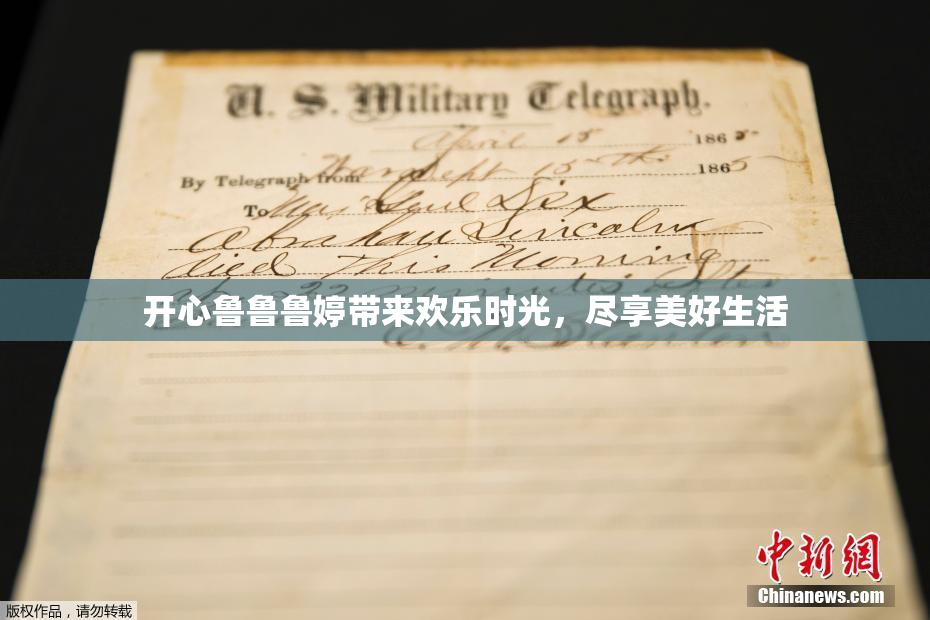 U. S. Military Telegraph.
April 15 1865
By Telegraph from War Dept 15th 1865
To Maj Genl Dix
Abraham Lincoln
died This Morning
22 minutes after
开心鲁鲁鲁婷带来欢乐时光，尽享美好生活
E. M. Stanton
中新网
Chinanews.com
版权作品，请勿转载